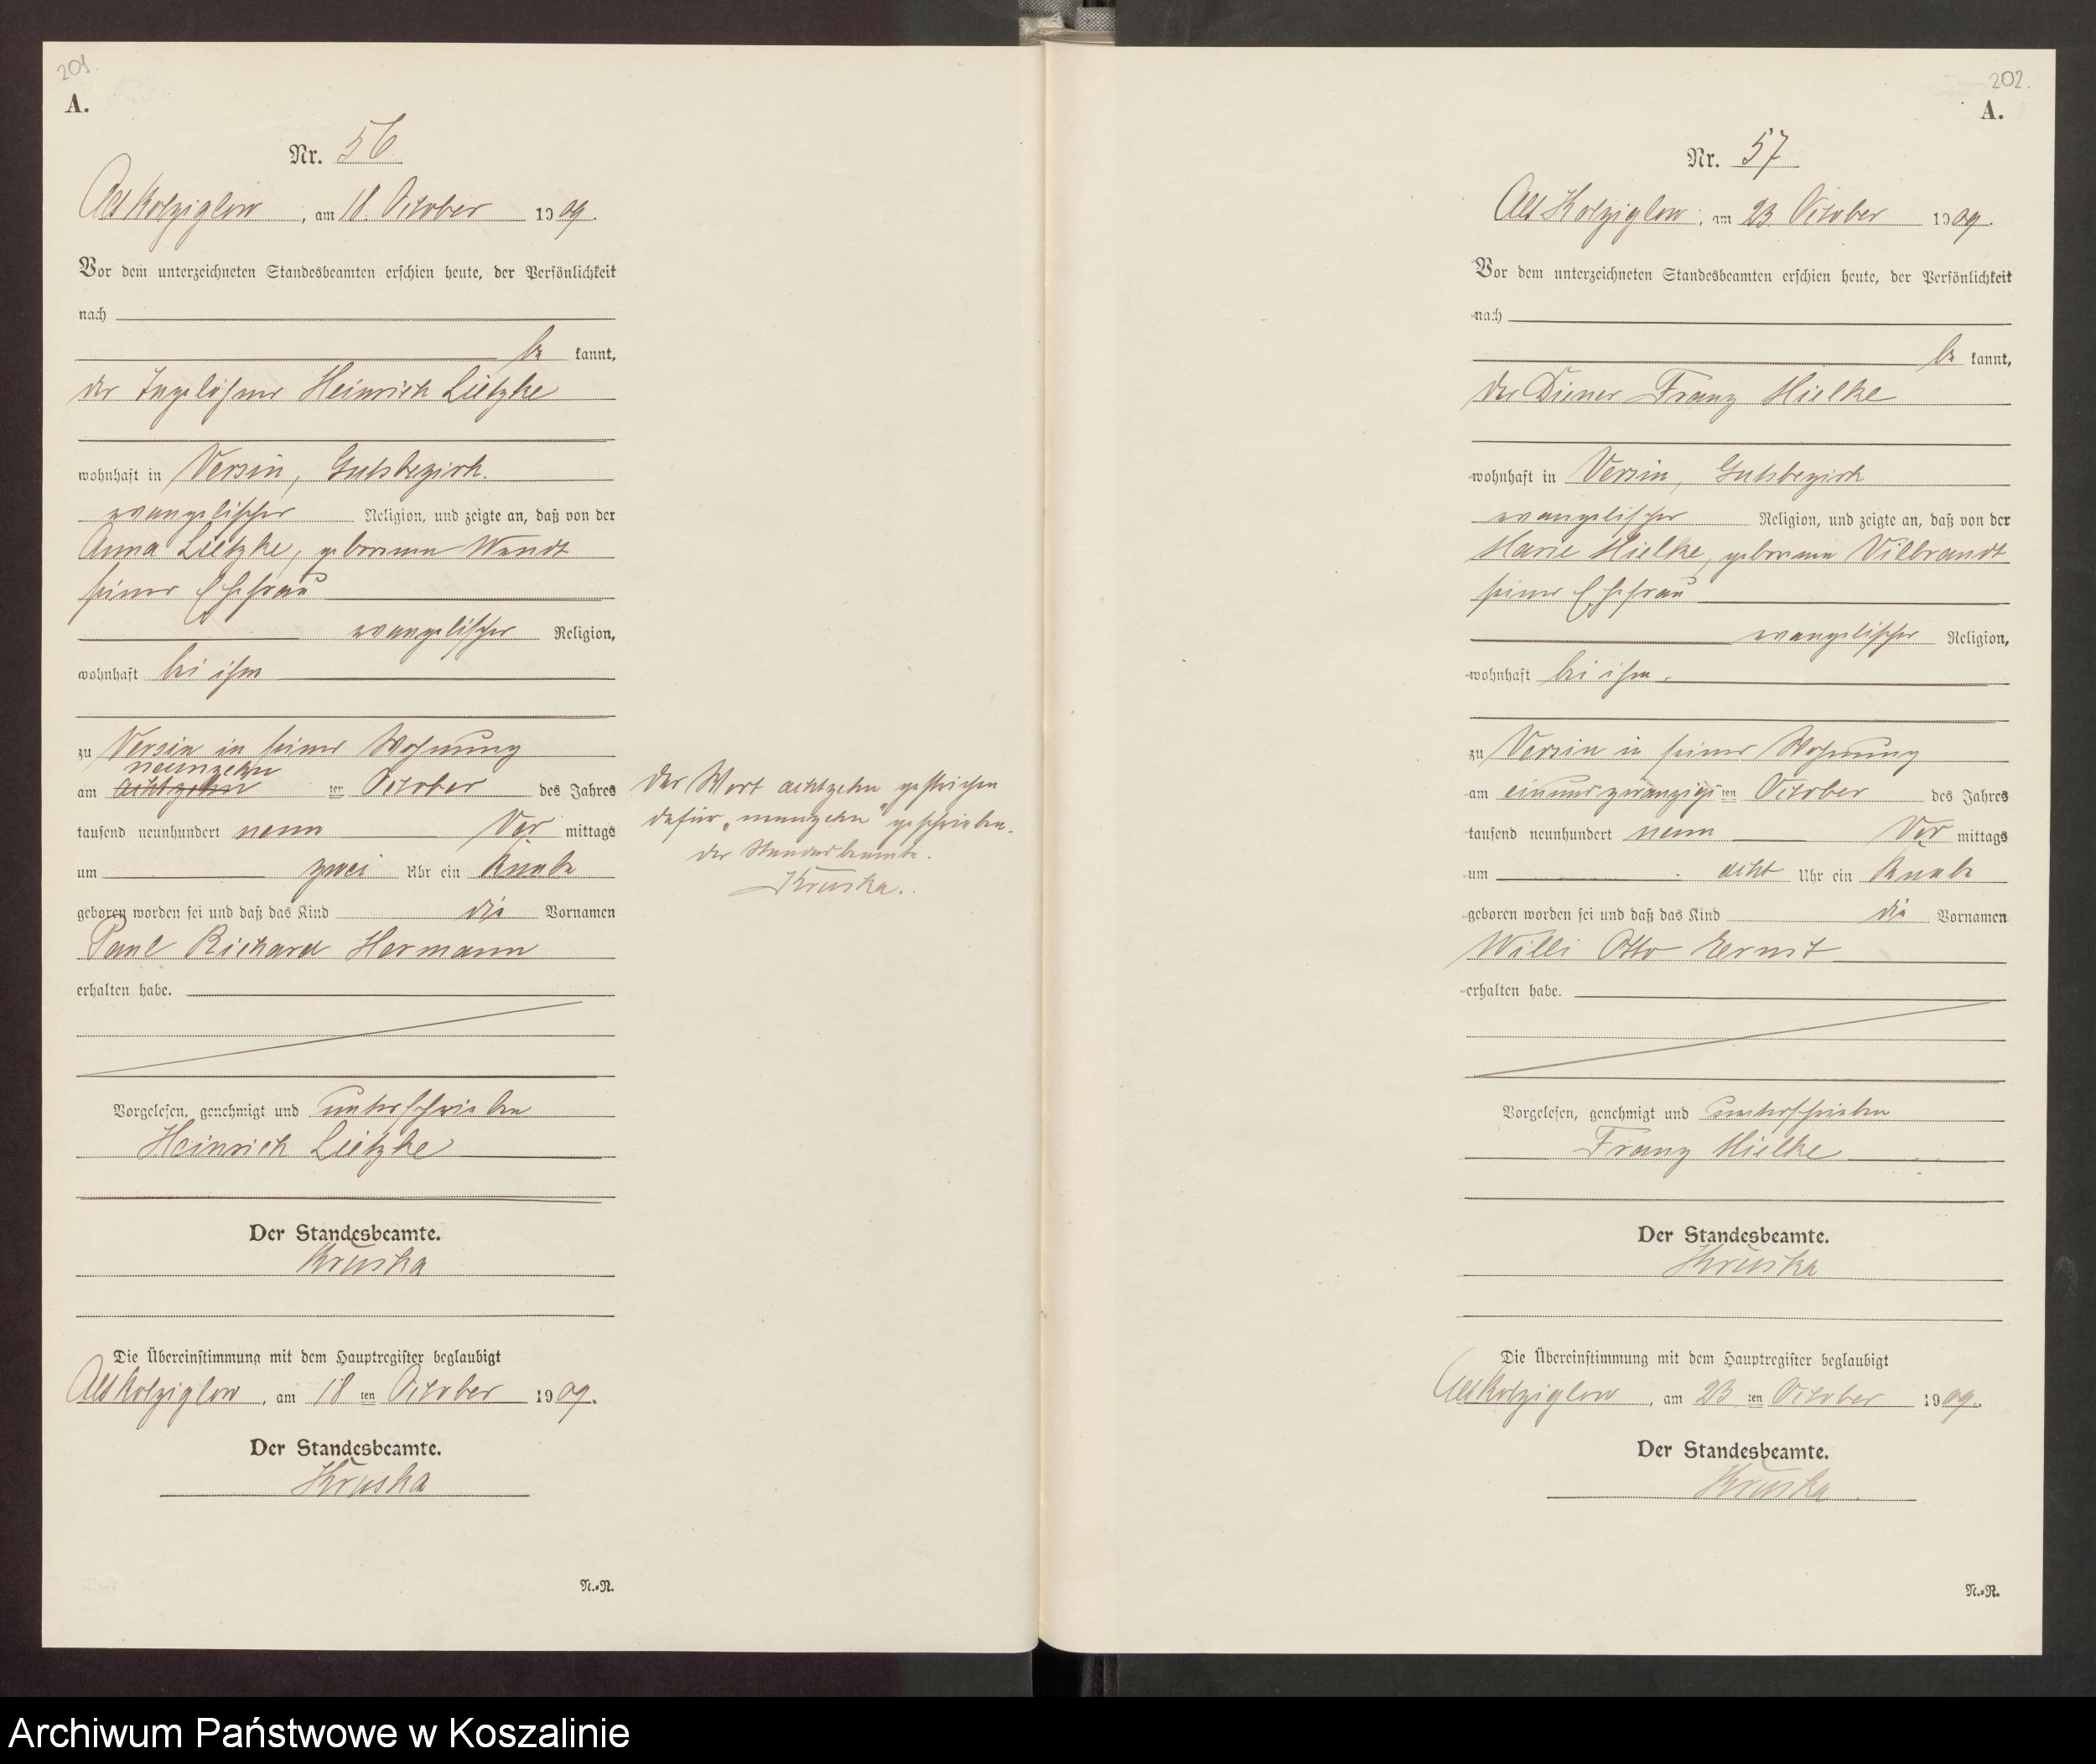 201.
A.
Nr. 56
Alt Kolziglow, am 18. October 1909.
Vor dem unterzeichneten Standesbeamten erschien heute, der Persönlichkeit
nach
be kannt,
der Tagelöhner Heinrich Lietzke
wohnhaft in Versin, Gutsbezirk.
evangelischer Religion, und zeigte an, daß von der
Anna Lietzke, geborenen Wendt
seiner Ehefrau
evangelischer Religion,
wohnhaft bei ihm
zu Versin in seiner Wohnung
neunzehn
am achtzehn ten October des Jahres
tausend neunhundert neun Vor mittags
um zwei Uhr ein Knabe
geboren worden sei und daß das Kind die Vornamen
Paul Richard Hermann
erhalten habe.
Vorgelesen, genehmigt und unterschrieben
Heinrich Lietzke
Der Standesbeamte.
Kruska
Die Übereinstimmung mit dem Hauptregister beglaubigt
Alt Kolziglow, am 18 ten October 1909.
Der Standesbeamte.
Kruska
N.=R.
Der Wort achtzehn gestrichen
dafür „neunzehn" geschrieben.
Der Standesbeamte.
Kruska.
202.
A.
Nr. 57
Alt Kolziglow, am 23. October 1909.
Vor dem unterzeichneten Standesbeamten erschien heute, der Persönlichkeit
nach
be kannt,
der Diener Franz Mielke
wohnhaft in Versin, Gutsbezirk
evangelischer Religion, und zeigte an, daß von der
Marie Mielke, geborenen Vilbrandt
seiner Ehefrau
evangelischer Religion,
wohnhaft bei ihm.
zu Versin in seiner Wohnung
am einundzwanzigs ten October des Jahres
tausend neunhundert neun Vor mittags
um acht Uhr ein Knabe
geboren worden sei und daß das Kind die Vornamen
Willi Otto Ernst
erhalten habe.
Vorgelesen, genehmigt und unterschrieben
Franz Mielke
Der Standesbeamte.
Kruska
Die Übereinstimmung mit dem Hauptregister beglaubigt
Alt Kolziglow, am 23 ten October 1909.
Der Standesbeamte.
Kruska
N.=R.
Archiwum Państwowe w Koszalinie